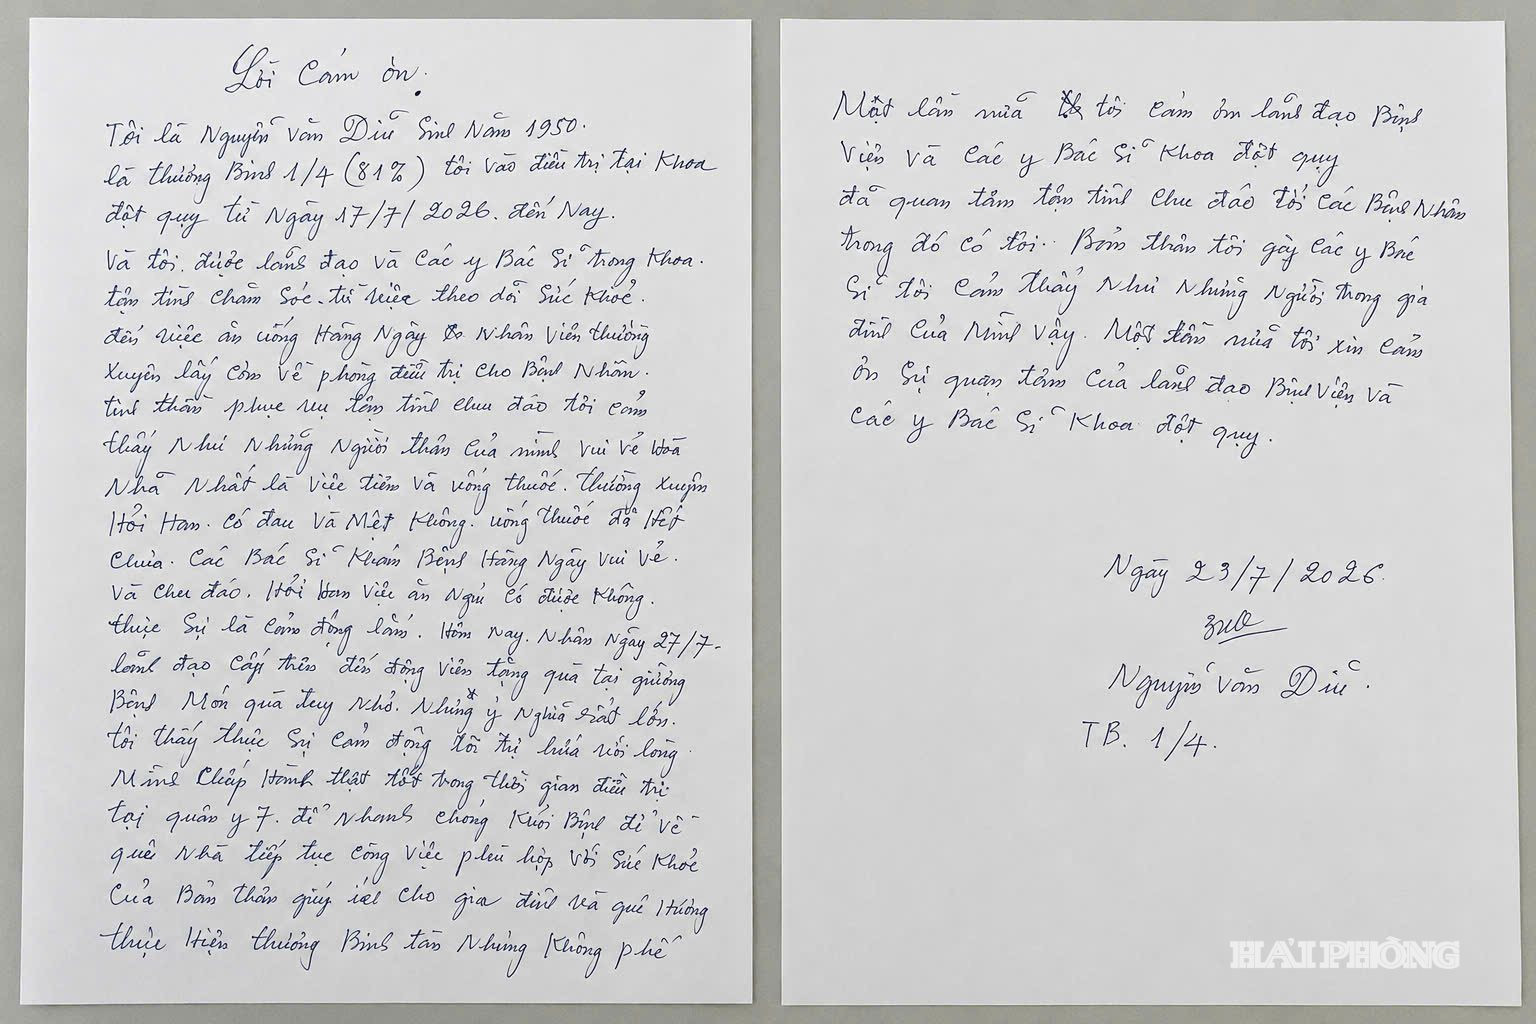 Lời cảm ơn.
Tôi là Nguyễn Văn Diễu Sinh Năm 1950.
là thương Binh 1/4 (81%) tôi vào điều trị tại Khoa
đột quỵ từ Ngày 17/7/2026. đến Nay.
Và tôi. được lãnh đạo và các y Bác Sĩ trong Khoa.
tận tình chăm sóc. từ việc theo dõi Sức Khoẻ.
đến việc ăn uống Hàng Ngày Nhân Viên thường
xuyên lấy cơm về phòng điều trị cho Bệnh Nhân.
tinh thần phục vụ tận tình chu đáo tôi cảm
thấy Như Những Người thân của mình vui vẻ Hoà
Nhã Nhất là việc tiêm và uống thuốc. thường xuyên
Hỏi Han. có đau và Mệt Không. uống thuốc đã Hết
chưa. các Bác Sĩ Khám Bệnh Hàng Ngày vui vẻ.
và chu đáo. Hỏi Han việc ăn Ngủ có được Không.
thực Sự là cảm động lắm. Hôm nay. Nhân Ngày 27/7.
lãnh đạo cấp trên đến động viên tặng quà tại giường
Bệnh Món quà tuy Nhỏ. Nhưng ý Nghĩa rất lớn.
tôi thấy thực Sự cảm động tôi tự hứa với lòng
Mình Chấp Hành thật tốt trong thời gian điều trị
tại quân y 7. để Nhanh chóng Khỏi Bệnh để về
quê Nhà tiếp tục công việc phù hợp với Sức Khoẻ
của Bản thân giúp ích cho gia đình và quê Hương
thực Hiện thương Binh tàn Nhưng Không phế
Một lần nữa tôi cảm ơn lãnh đạo Bệnh
viện và các y Bác Sĩ Khoa đột quỵ
đã quan tâm tận tình chu đáo tới các Bệnh Nhân
trong đó có tôi. Bản thân tôi gặp các y Bác
Sĩ tôi cảm thấy Như Những Người trong gia
đình của Mình vậy. Một lần nữa tôi xin cảm
ơn Sự quan tâm của lãnh đạo Bệnh Viện và
các y Bác Sĩ Khoa đột quỵ.
Ngày 23/7/2026.
Nguyễn Văn Diễu.
TB. 1/4.
HẢI PHÒNG